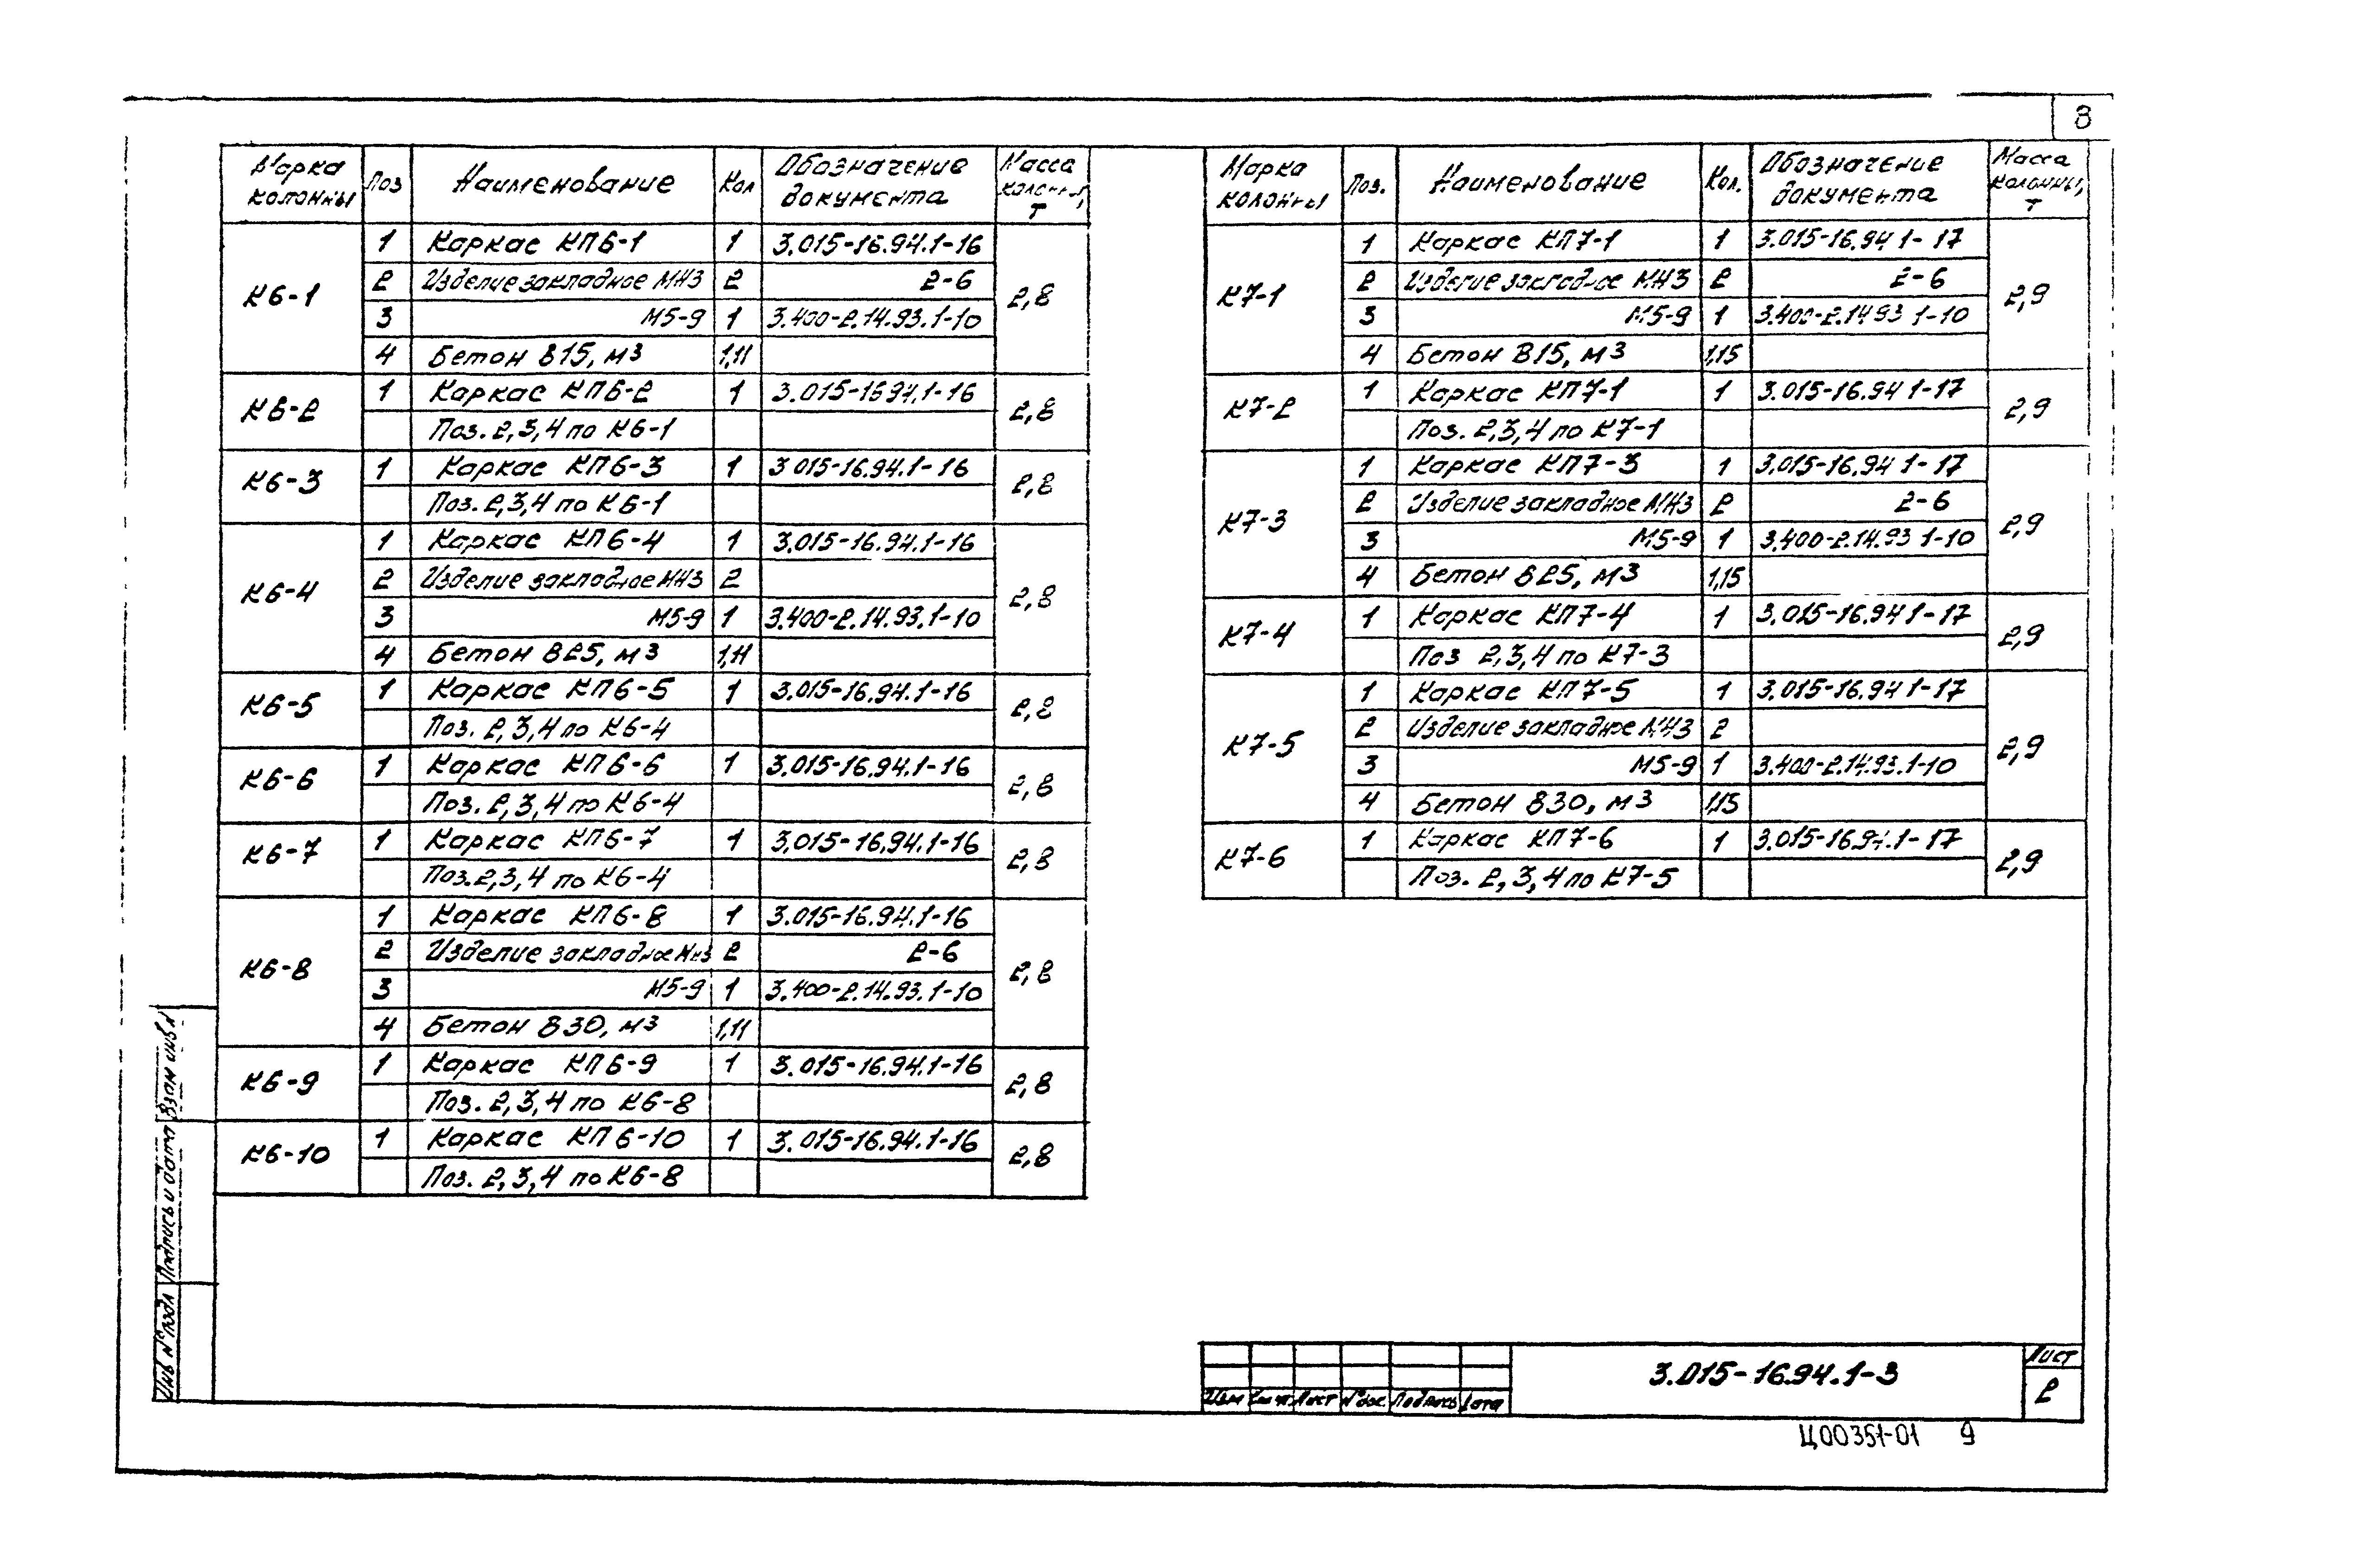 8
Марка колонны Поз Наименование Кол Обозначение документа Масса колонны, т
К6-1 1 Каркас КП6-1 1 3.015-16.94.1-16 2,8
2 Изделие закладное МН3 2 2-6
3 М5-9 1 3.400-2.14.93.1-10
4 Бетон В15, м3 1,11
К6-2 1 Каркас КП6-2 1 3.015-16.94.1-16 2,8
Поз. 2,3,4 по К6-1
К6-3 1 Каркас КП6-3 1 3.015-16.94.1-16 2,8
Поз. 2,3,4 по К6-1
К6-4 1 Каркас КП6-4 1 3.015-16.94.1-16 2,8
2 Изделие закладное МН3 2
3 М5-9 1 3.400-2.14.93.1-10
4 Бетон В25, м3 1,11
К6-5 1 Каркас КП6-5 1 3.015-16.94.1-16 2,8
Поз. 2,3,4 по К6-4
К6-6 1 Каркас КП6-6 1 3.015-16.94.1-16 2,8
Поз. 2,3,4 по К6-4
К6-7 1 Каркас КП6-7 1 3.015-16.94.1-16 2,8
Поз. 2,3,4 по К6-4
К6-8 1 Каркас КП6-8 1 3.015-16.94.1-16 2,8
2 Изделие закладное МН3 2 2-6
3 М5-9 1 3.400-2.14.93.1-10
4 Бетон В30, м3 1,11
К6-9 1 Каркас КП6-9 1 3.015-16.94.1-16 2,8
Поз. 2,3,4 по К6-8
К6-10 1 Каркас КП6-10 1 3.015-16.94.1-16 2,8
Поз. 2,3,4 по К6-8
Марка колонны Поз. Наименование Кол. Обозначение документа Масса колонны, т
К7-1 1 Каркас КП7-1 1 3.015-16.94 1-17 2,9
2 Изделие закладное МН3 2 2-6
3 М5-9 1 3.400-2.14 93 1-10
4 Бетон В15, м3 1,15
К7-2 1 Каркас КП7-1 1 3.015-16.94 1-17 2,9
Поз. 2,3,4 по К7-1
К7-3 1 Каркас КП7-3 1 3.015-16.94 1-17 2,9
2 Изделие закладное МН3 2 2-6
3 М5-9 1 3.400-2.14.93 1-10
4 Бетон В25, м3 1,15
К7-4 1 Каркас КП7-4 1 3.015-16.94 1-17 2,9
Поз 2,3,4 по К7-3
К7-5 1 Каркас КП7-5 1 3.015-16.94 1-17 2,9
2 Изделие закладное МН3 2
3 М5-9 1 3.400-2.14.93.1-10
4 Бетон В30, м3 1,15
К7-6 1 Каркас КП7-6 1 3.015-16.94.1-17 2,9
Поз. 2,3,4 по К7-5
Взам инв №
Подпись и дата
Инв № подл
Изм Кол уч Лист № док Подпись Дата
3.015-16.94.1-3
Лист
2
Ц00351-01 9